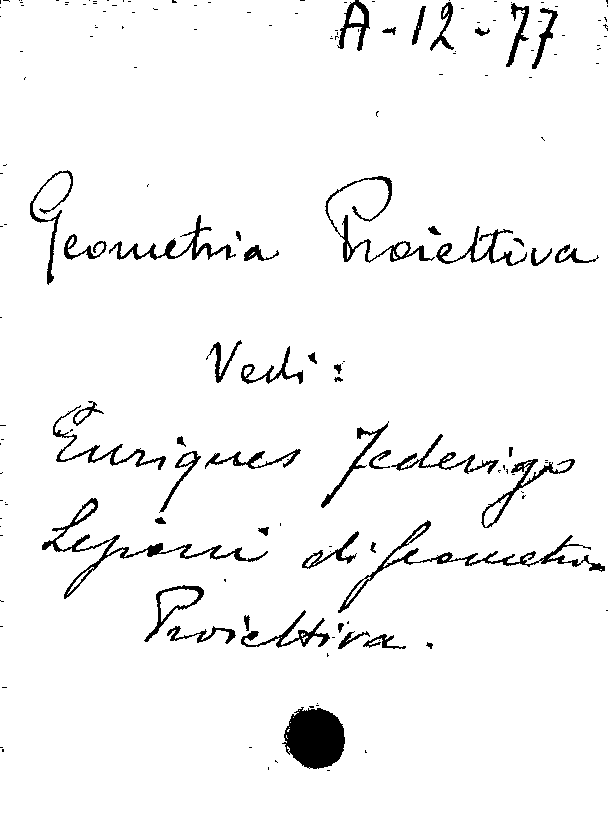 A-12-77
Geometria Proiettiva
Vedi:
Enriques Federigo
Lezioni di Geometria
Proiettiva.